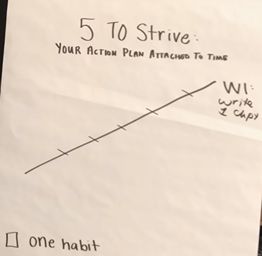 5 TO Strive:
YOUR ACTION PLAN ATTACHED TO TIME
WI:
write
1 chpr
one habit